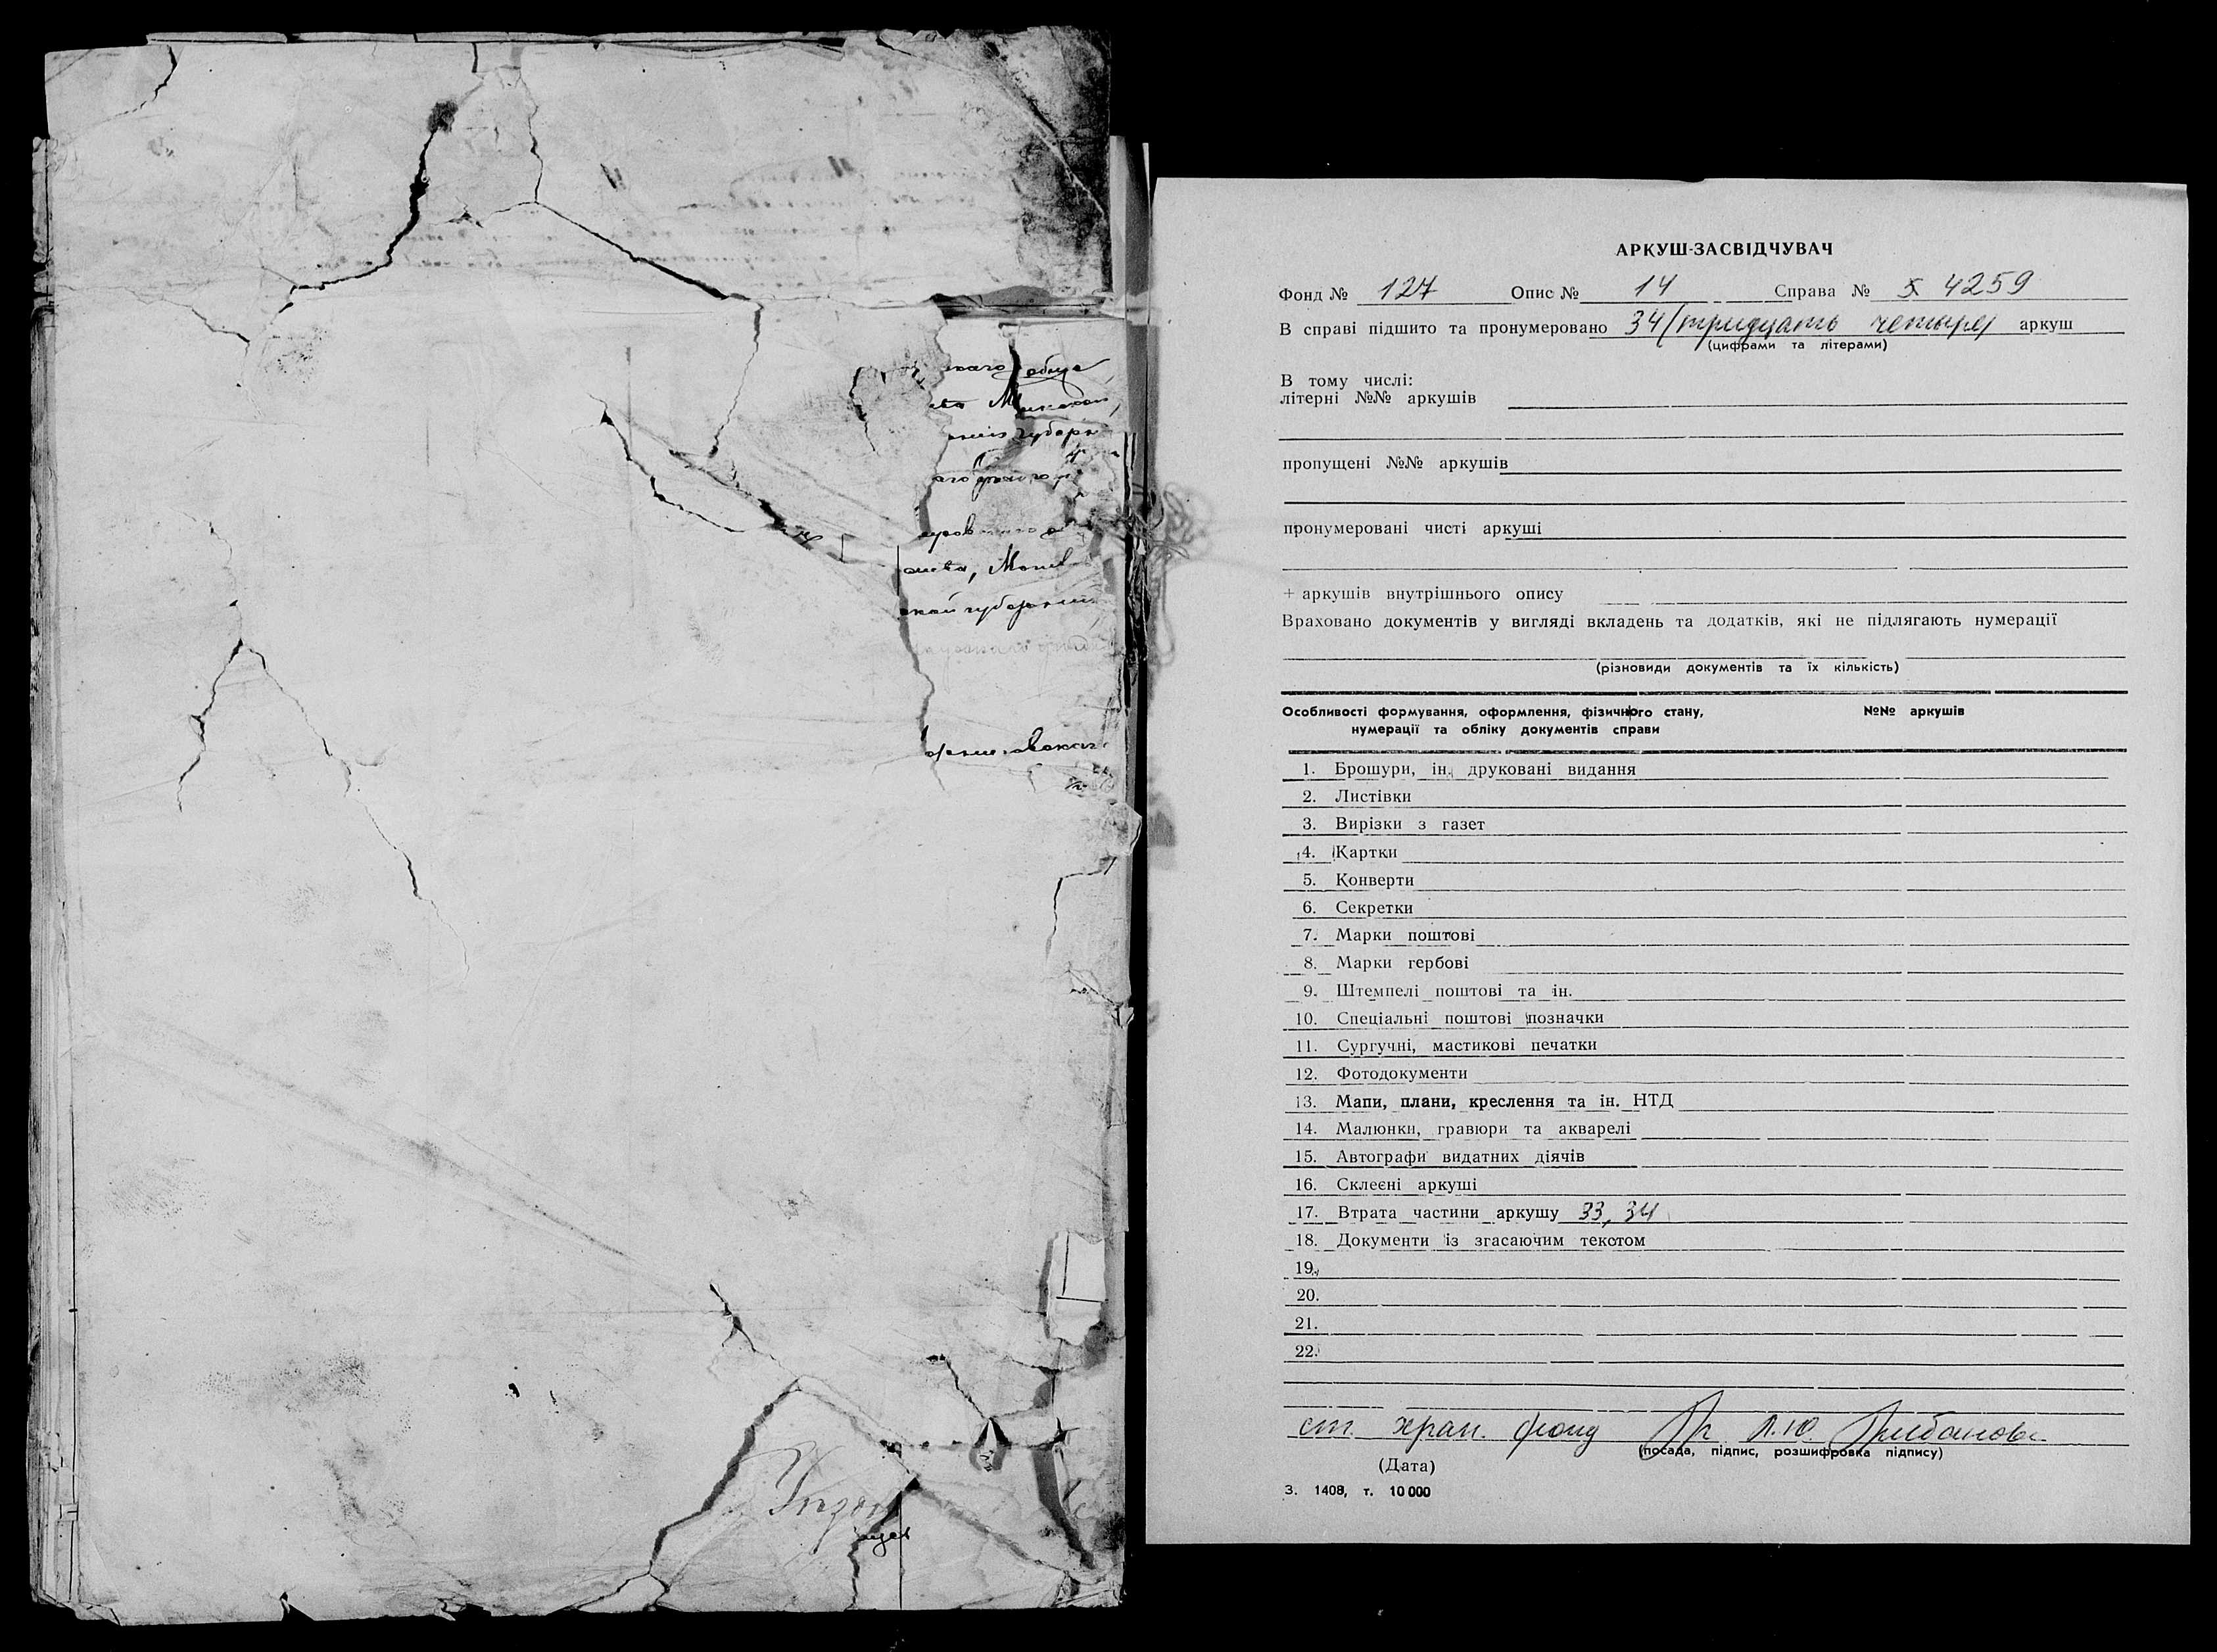 губерн
Могил
ской губерніи
АРКУШ-ЗАСВІДЧУВАЧ
Фонд № 127 Опис № 14 Справа № 4259
В справі підшито та пронумеровано 34 (тридцать четыре) аркуш
(цифрами та літерами)
В тому числі:
літерні №№ аркушів
пропущені №№ аркушів
пронумеровані чисті аркуші
+ аркушів внутрішнього опису
Враховано документів у вигляді вкладень та додатків, які не підлягають нумерації
(різновиди документів та їх кількість)
Особливості формування, оформлення, фізичного стану, №№ аркушів
нумерації та обліку документів справи
1. Брошури, ін. друковані видання
2. Листівки
3. Вирізки з газет
4. Картки
5. Конверти
6. Секретки
7. Марки поштові
8. Марки гербові
9. Штемпелі поштові та ін.
10. Спеціальні поштові позначки
11. Сургучні, мастикові печатки
12. Фотодокументи
13. Мапи, плани, креслення та ін. НТД
14. Малюнки, гравюри та акварелі
15. Автографи видатних діячів
16. Склеєні аркуші
17. Втрата частини аркушу 33, 34
18. Документи із згасаючим текстом
19.
20.
21.
22.
ст. хран. фонд Л.Ю.
(посада, підпис, розшифровка підпису)
(Дата)
З. 1408, т. 10 000